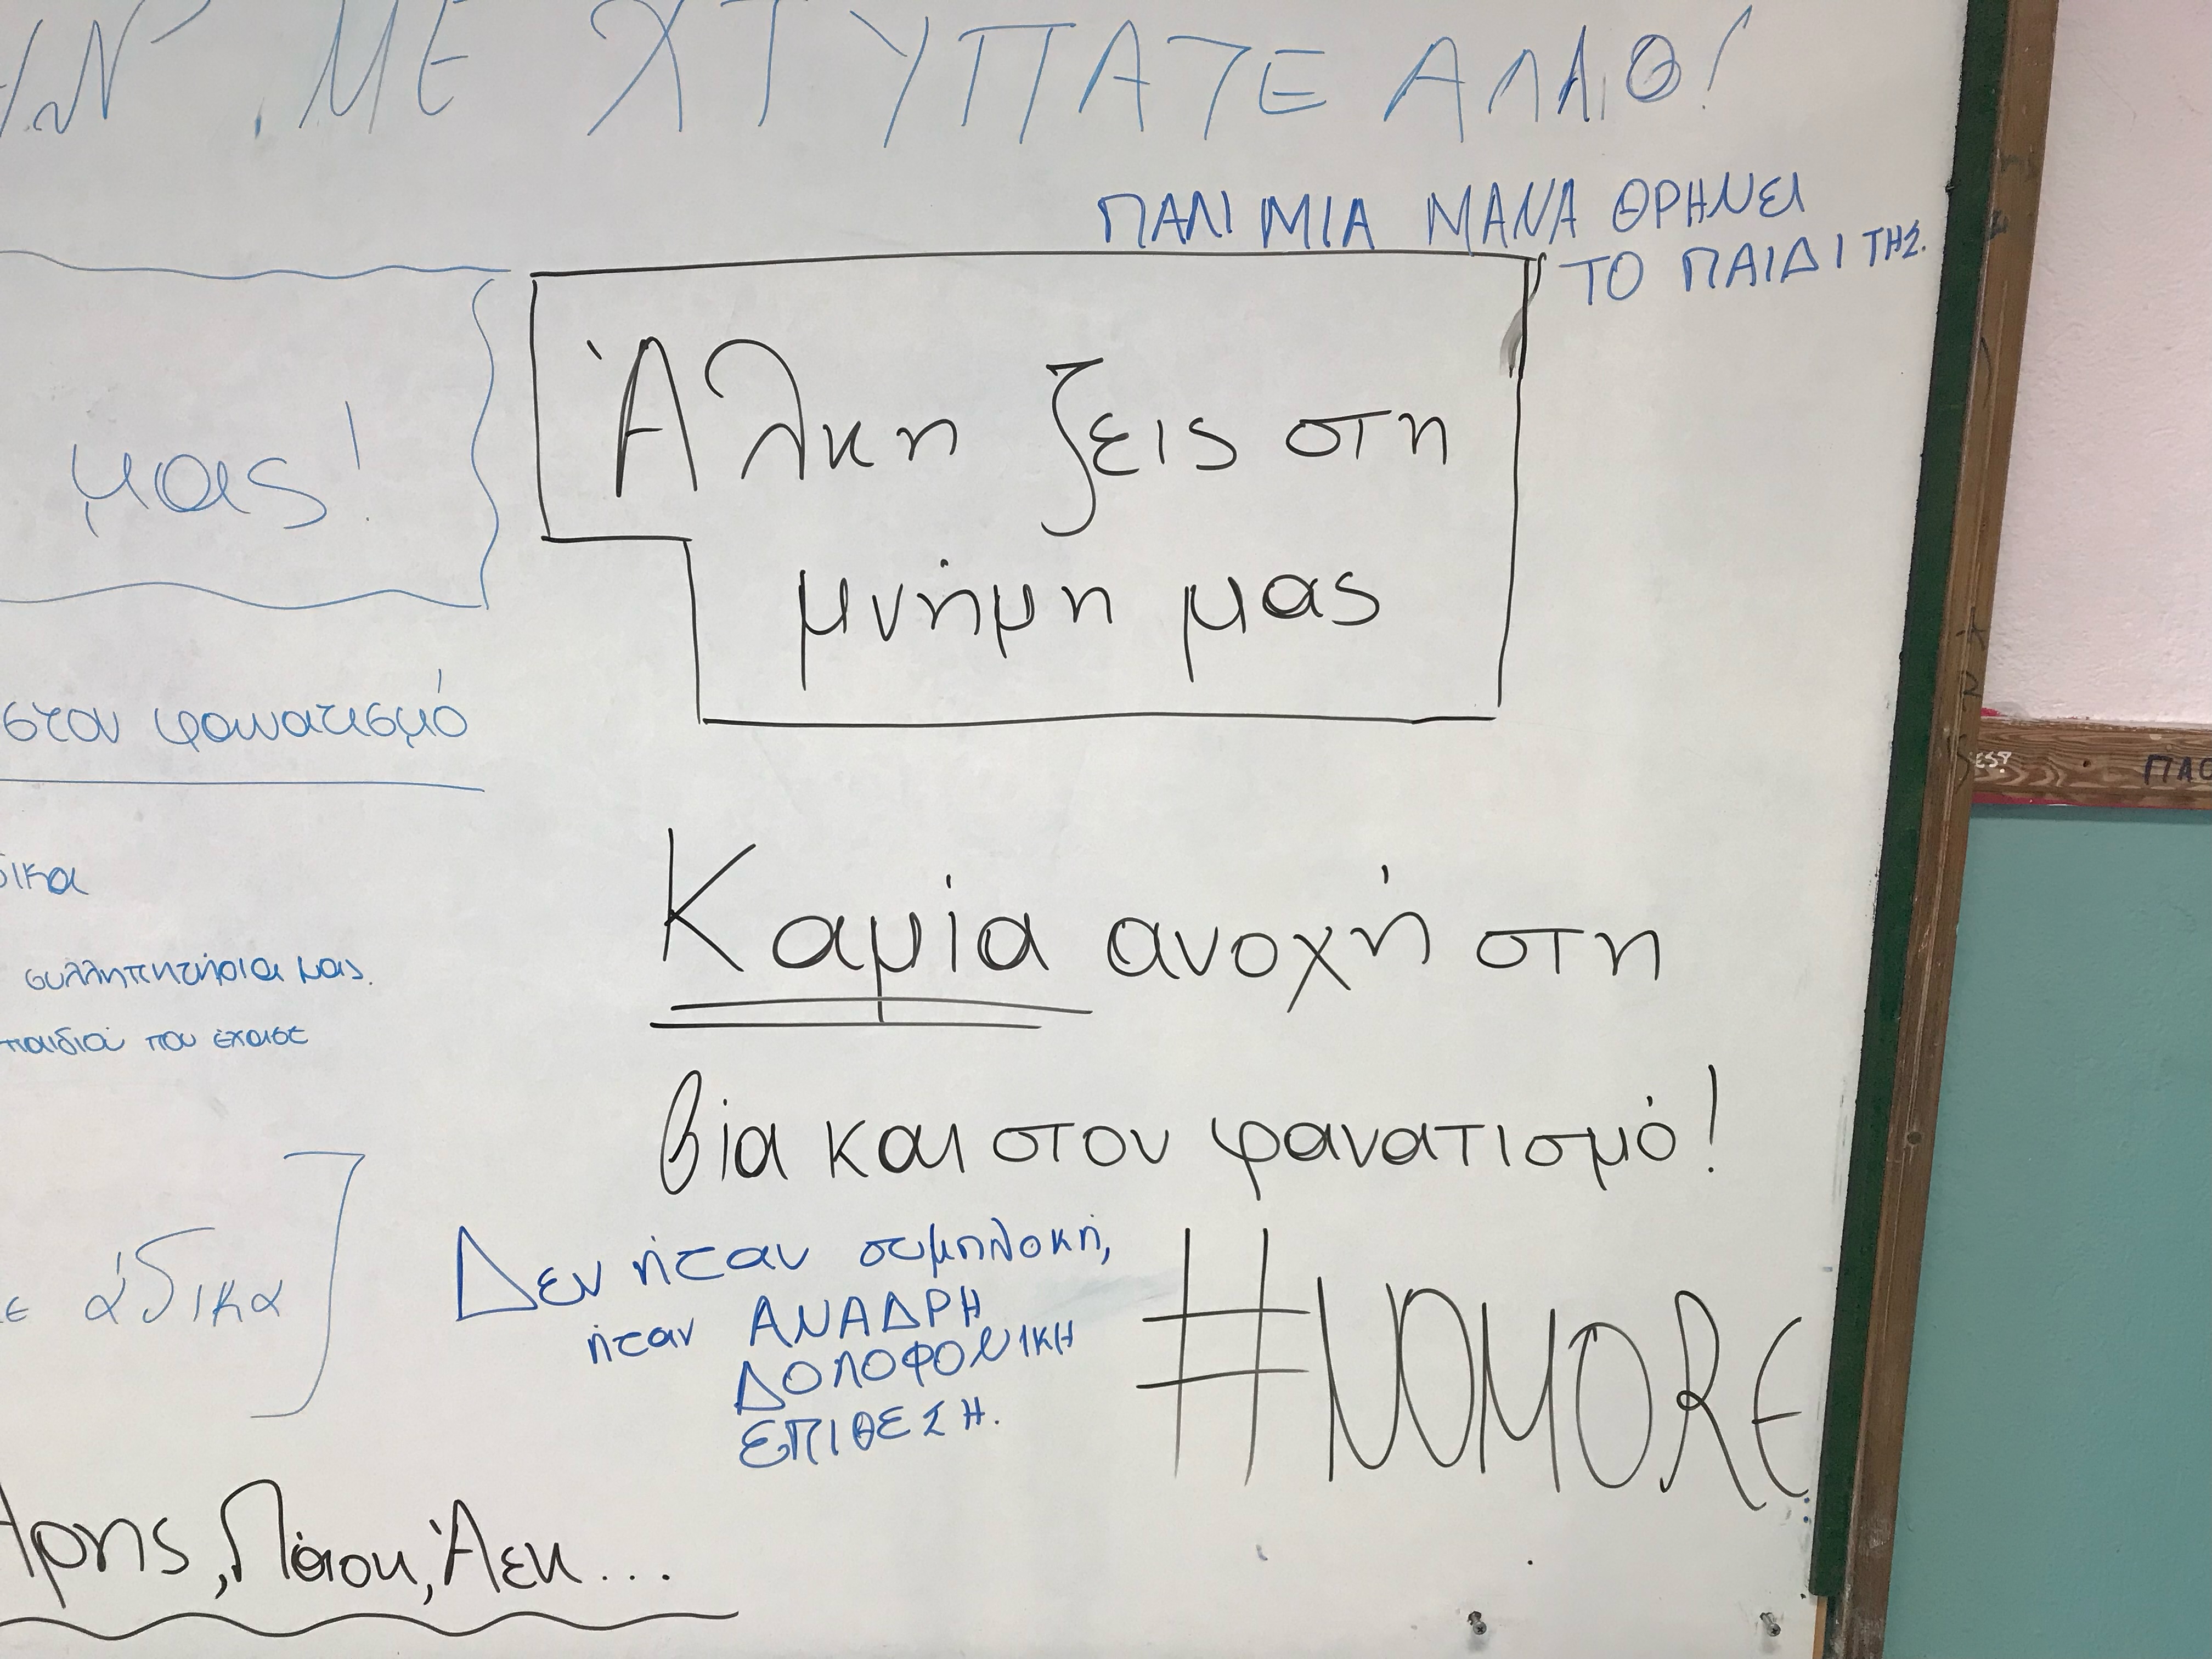 ΜΗΝ ΜΕ ΧΤΥΠΑΤΕ ΑΛΛΟ!
ΠΑΛΙ ΜΙΑ ΜΑΝΑ ΘΡΗΝΕΙ
ΤΟ ΠΑΙΔΙ ΤΗΣ.
Άλκη ζεις στη
μνήμη μας
μας!
στον φανατισμό
Καμία ανοχή στη
βία και στον φανατισμό!
συλληπητήρια μας.
παιδιά που έχασε
άδικα
Δεν ήταν συμπλοκή,
ήταν ΑΝΑΔΡΗ
ΔΟΛΟΦΟΝΙΚΗ
ΕΠΙΘΕΣΗ.
#NOMORE
Άρης, Πάοκ, Άεκ...